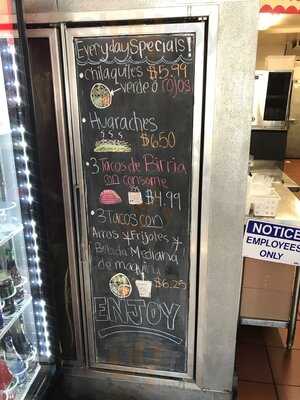 Everyday Specials!
Chilaquiles $5.99
verde ó rojos
Huaraches
$6.50
3 Tacos de Birria
con consome
$4.99
3 Tacos con
Arros y Frijoles y
Bebida Mediana
de maquina
$6.25
ENJOY
NOTICE
EMPLOYEES
ONLY